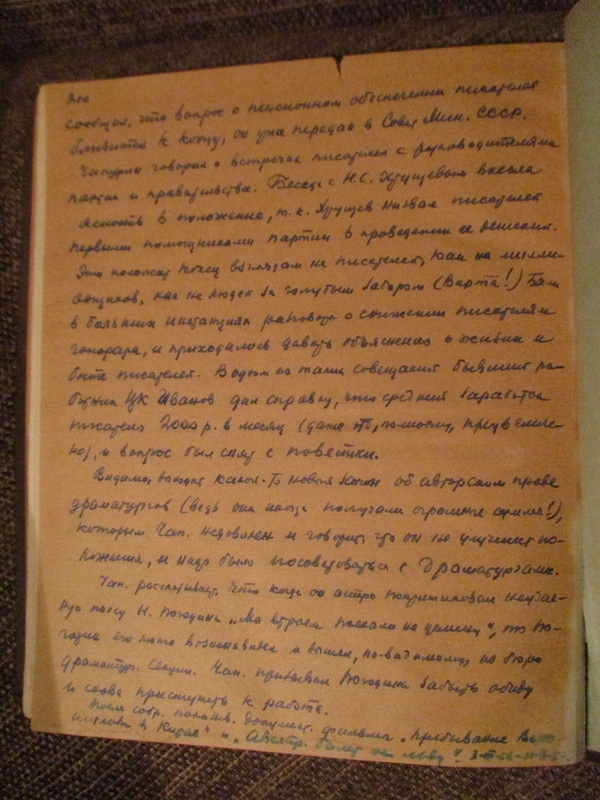 сообщил, что вопрос о пенсионном обеспечении писателей
близится к концу, он уже передан в Совет Мин. СССР.
Чапурин говорил о встречах писателей с руководителями
партии и правительства. Беседа с Н.С. Хрущевым внесла
ясность в положение, т.к. Хрущев назвал писателей
первыми помощниками партии в проведении ее решений.
Это положит конец взглядам на писателей, как на
как на людей за голубым забором (Варта!) Были
в больших инстанциях разговоры о снижении писателям
гонорара, и приходилось давать объяснения о жизни и
быте писателей. В одном из таких совещаний бывший ра-
ботник ЦК Иванов дал справку, что средний заработок
писателя 2000 р. в месяц (даже это, по-моему, преувеличе-
но), и вопрос был снят с повестки.
Видимо, выходит какой-то новый закон об авторском праве
драматургов (ведь они иногда получали огромные суммы!),
которым Чап. недоволен и говорит, что он не улучшит по-
ложения, и надо было посоветоваться с драматургами.
Чап. рассказывает, что когда он остро покритиковал неудач-
ную пьесу Н. Погодина „Мы втроем поехали на целину", то По-
годин его люто возненавидел и вышел, по-видимому, из бюро
драматург. секции. Чап. призывал Погодина забыть обиду
и снова приступить к работе.
После собр. показыв. документ. фильмы „Пребывание
в Китае" и „балет на льду".